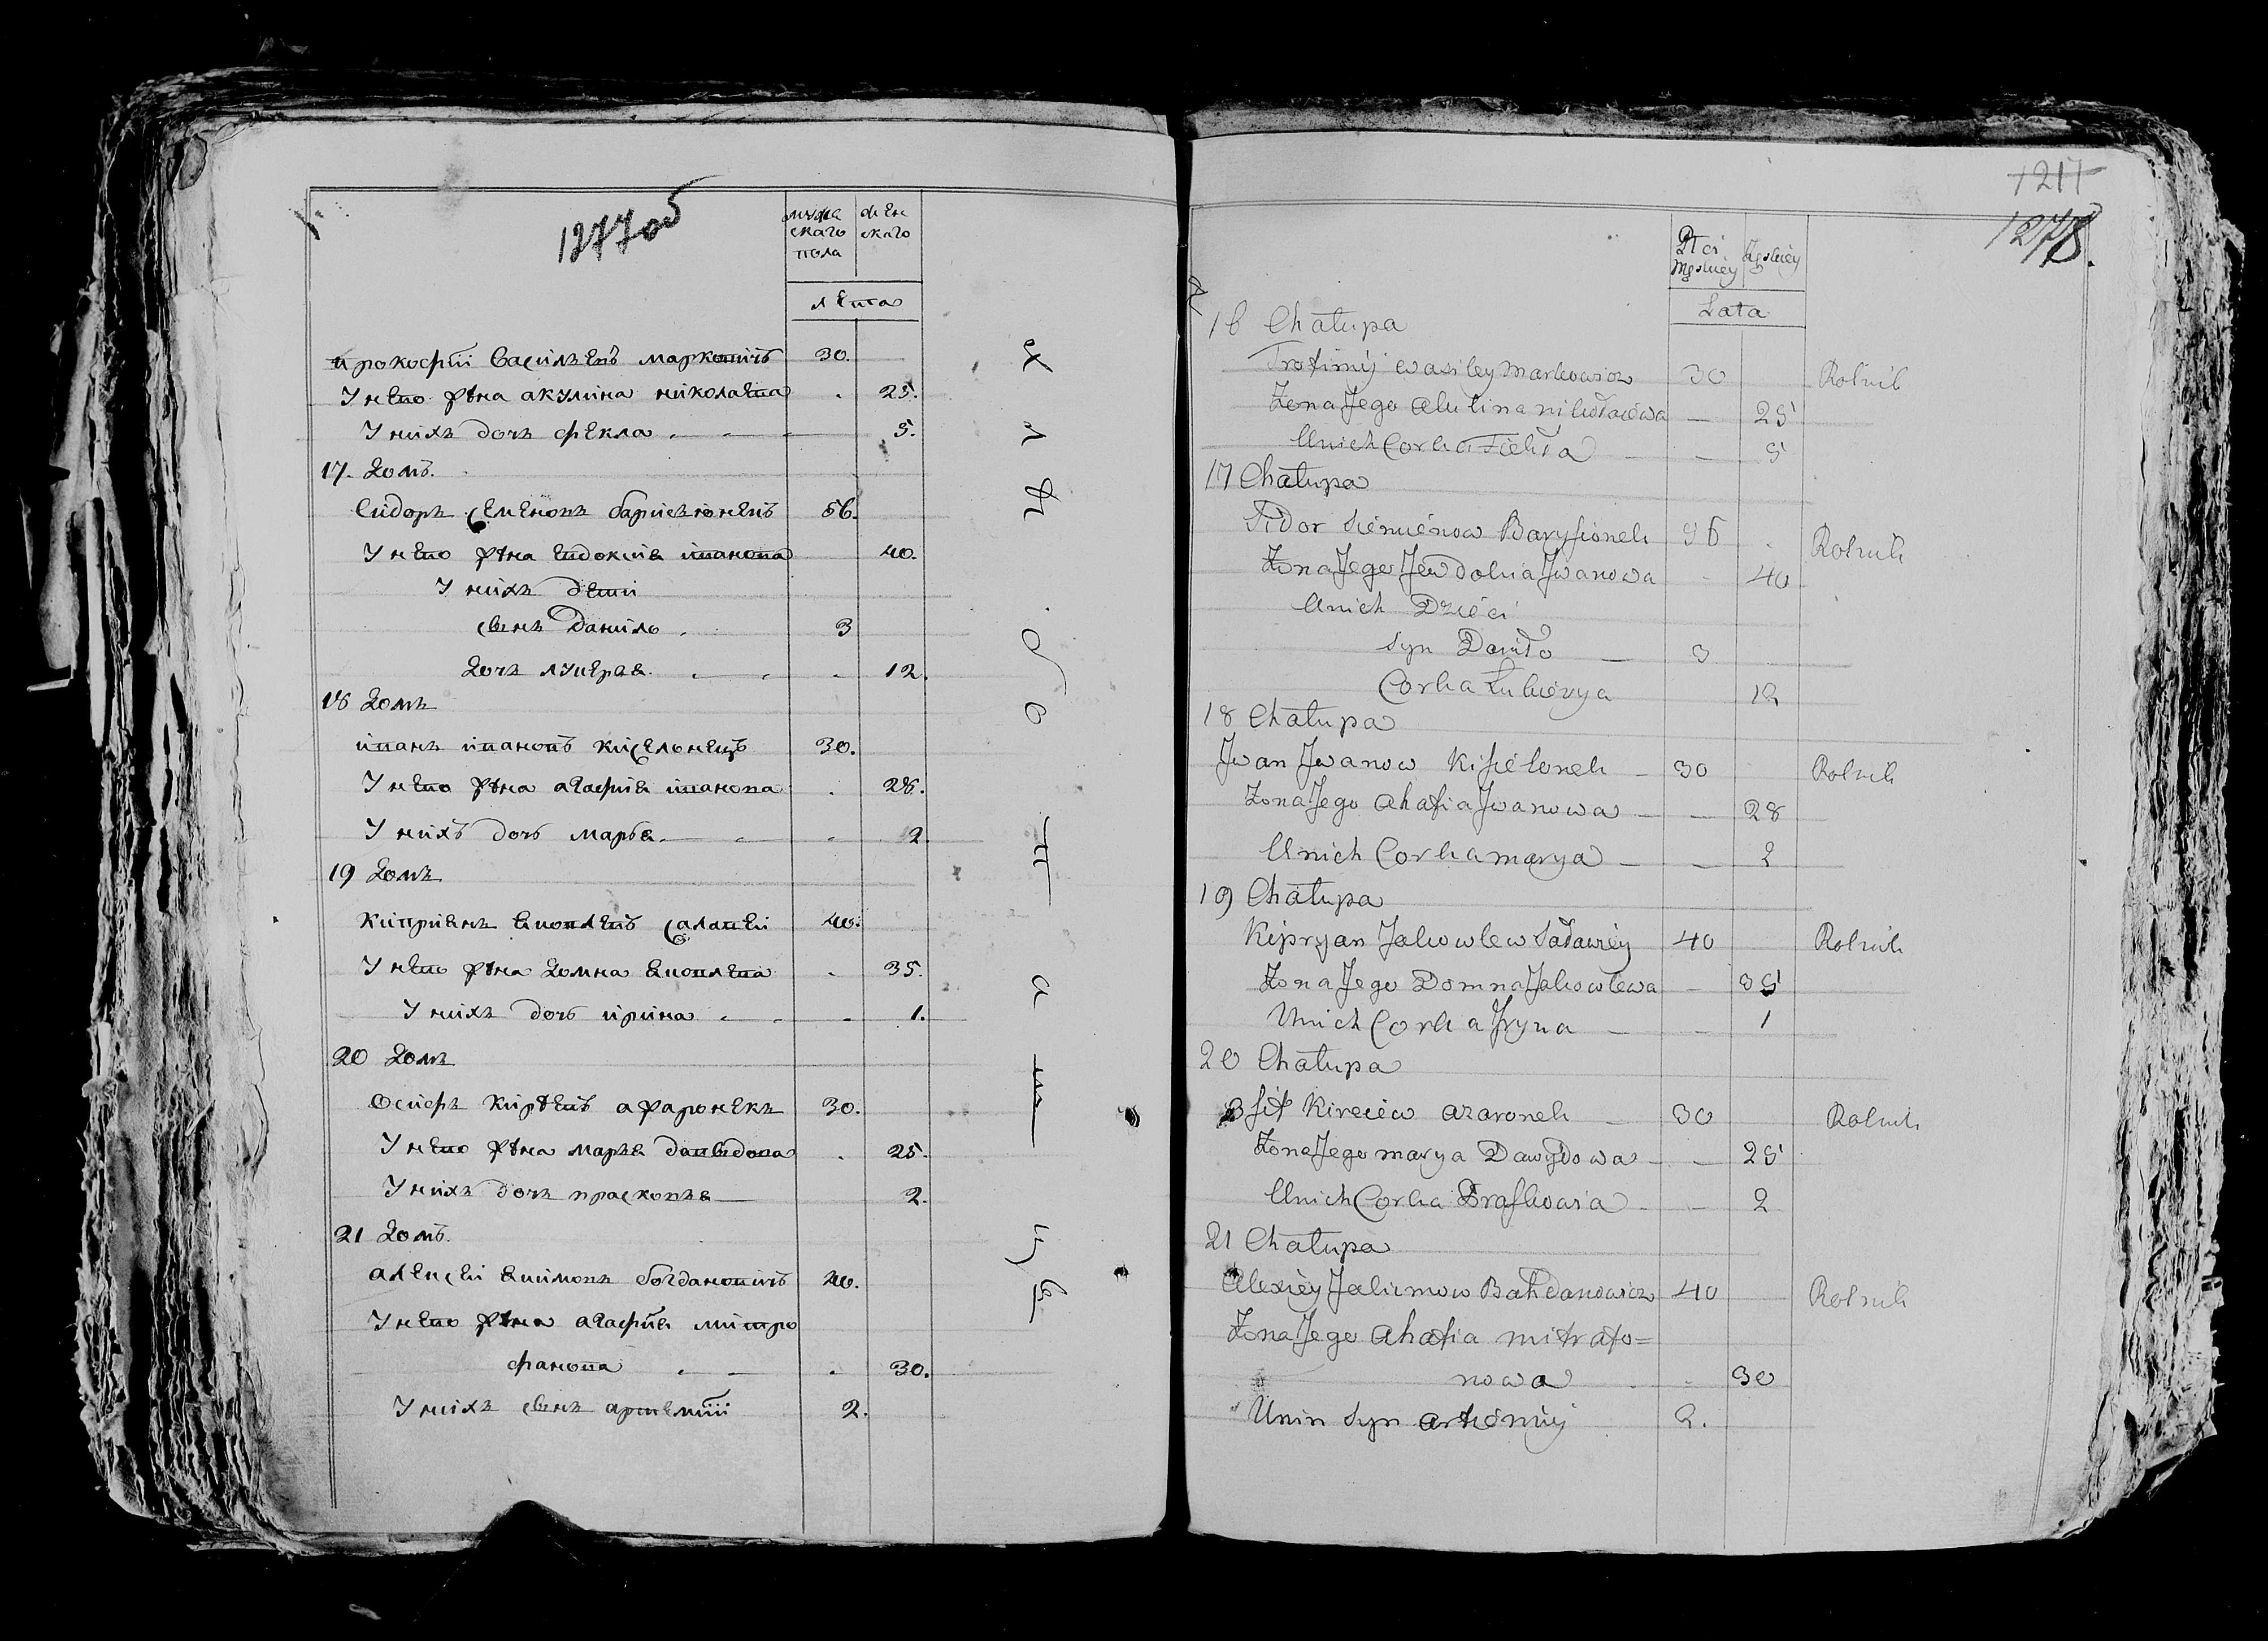 1277об
мужескаго пола
женскаго
лета
прокофій васильевъ марковичъ 30.
У него жена акулина николаева 25.
У нихъ дочь фекла 5.
17. Домъ.
Сидоръ Семеновъ барисьонекъ 56.
У него жена евдокия иванова 40.
У нихъ дети
сынъ Данило 3
Дочь лукерья 12.
18 Домъ
иванъ ивановъ киселонекъ 30.
У него жена агафия иванова 28.
У нихъ дочь марья 2.
19 Домъ
киприянъ яковлевъ салавеі 40.
У него жена Домна яковлева 35.
У нихъ дочь ирина 1.
20 Домъ
Осифъ киреевъ азаронекъ 30.
У него жена марья давыдова 25.
У нихъ дочь прасковья 2.
21 Домъ.
алексеі якимовъ богданович 40.
У него жена агафия митро
фанова 30.
У нихъ сынъ артемиі 2.
хлебопашецъ
1217
1278.
Płci Męskiéy
Żęskiéy
Lata
16 Chałupa
Prokimij Wasiley Markowicz 30 Rolnik
Żona Jego Akulina Nikołaiéwa 25
Unich Corka Fiekła 5
17 Chałupa
Sidor Siémiénow Barysionek 56 Rolnik
Żona Jego Jewdokia Jwanowa 40
Unich Dziéci
syn Daniło 3
Corka Łukiérya 12
18 Chałupa
Jwan Jwanow Kisiélonek 30 Rolnik
Żona Jego Ahafia Jwanowa 28
Unich Corka marya 2
19 Chałupa
Kipryan Jakowlew Saławiéy 40 Rolnik
Żona Jego Domna Jakowlewa 35
Unich Corka Jryna 1
20 Chałupa
Osif Kireiéw azaronek 30 Rolnik
Żona Jego marya Dawydowa 25
Unich Corka Praskowia 2
21 Chałupa
Alexiéy Jakimow Bahdanowicz 40 Rolnik
Żona Jego Ahafia mitrafo=
nowa 30
Unin syn artiémiy 2.